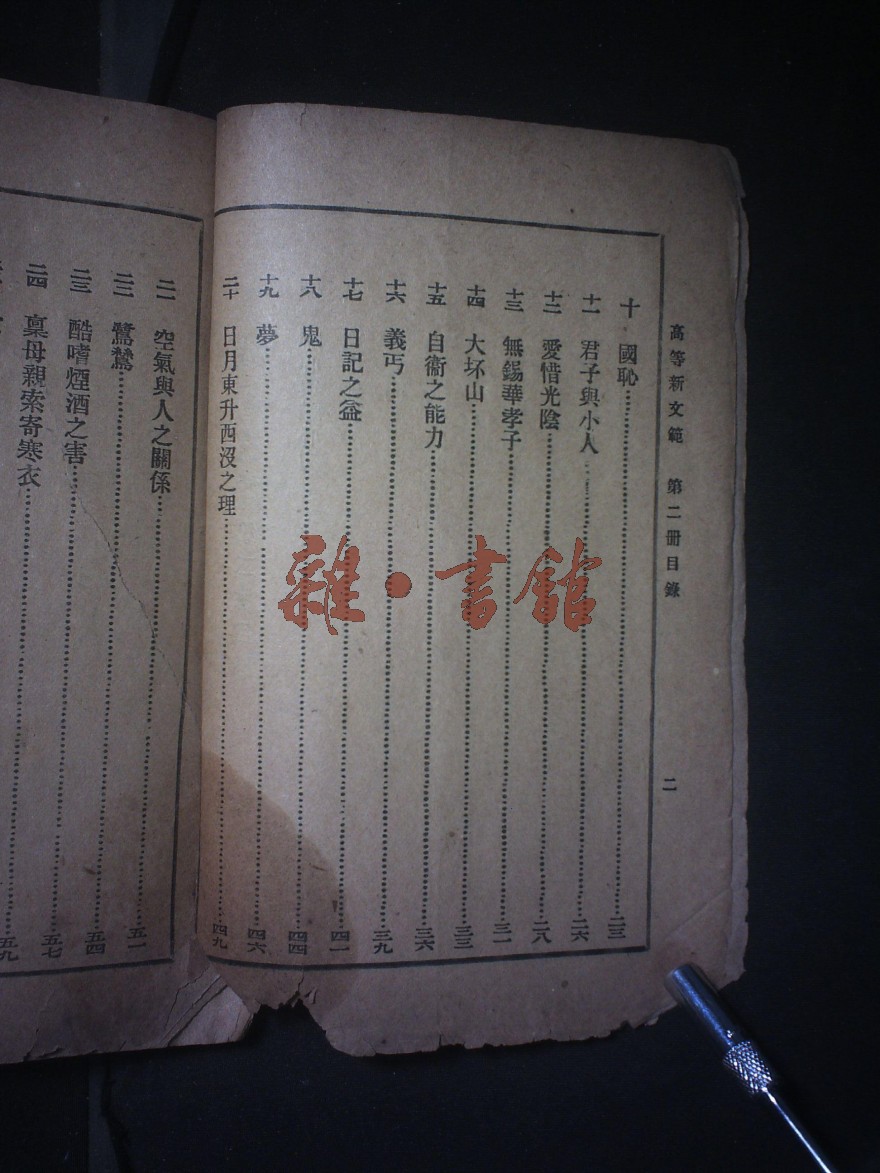 高等新文範　第二冊目錄
二
十　國恥…二三
十一　君子與小人…二六
十二　愛惜光陰…二八
十三　無錫華孝子…三一
十四　大坏山…三三
十五　自衞之能力…三六
十六　義丐…三九
十七　日記之益…四一
十八　鬼…四四
十九　夢…四六
二十　日月東升西沒之理…四九
二一　空氣與人之關係…五一
二二　鷺鷥…五四
二三　酷嗜煙酒之害…五七
二四　稟母親索寄寒衣…五九
雜·書館